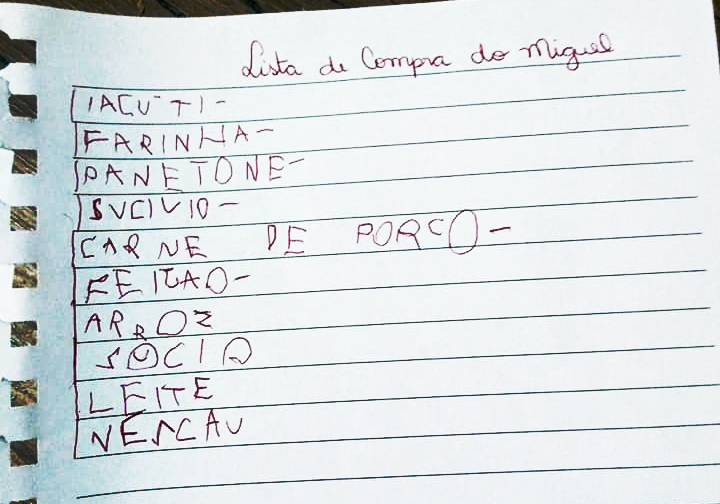 Lista de Compra do Miguel
IACUTI-
FARINHA-
PANETONE-
SVCIVIO-
CARNE DE PORCO-
FEIJAO-
ARROZ
SOCIO
LEITE
NESCAU